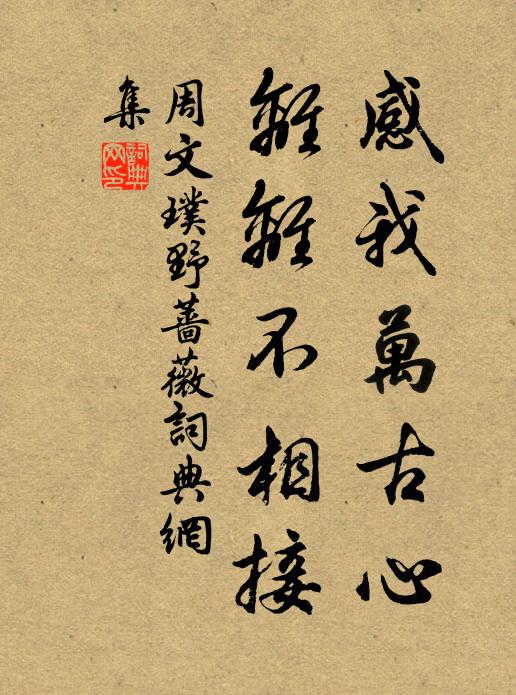 感我萬古心
離離不相接
周文璞野薔薇詞典網
集
詞典
网印